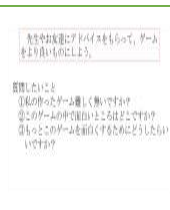 先生やお友達にアドバイスをもらって、ゲーム
をより良いものにしよう。
質問したいこと
①私の作ったゲーム難しく無いですか?
②このゲームの中で面白いところはどこですか?
③もっとこのゲームを面白くするためにどうしたらい
いですか?